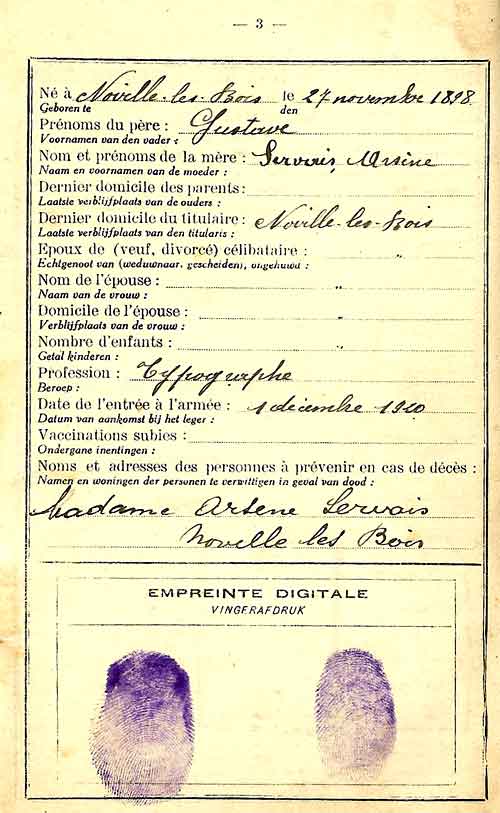 — 3 —
Né à Noville-les-Bois le 27 novembre 1898
Geboren te den
Prénoms du père : Gustave
Voornamen van den vader :
Nom et prénoms de la mère : Servais, Arsène
Naam en voornamen van de moeder :
Dernier domicile des parents:
Laatste verblijfplaats van de ouders :
Dernier domicile du titulaire : Noville-les-Bois
Laatste verblijfplaats van den titularis :
Epoux de (veuf, divorcé) célibataire : "
Echtgenoot van (weduwnaar, gescheiden), ongehuwd :
Nom de l'épouse : "
Naam van de vrouw :
Domicile de l'épouse : "
Verblijfplaats van de vrouw :
Nombre d'enfants : "
Getal kinderen :
Profession : Typographe
Beroep :
Date de l'entrée à l'armée : 1 décembre 1920
Datum van aankomst bij het leger :
Vaccinations subies :
Ondergane inentingen :
Noms et adresses des personnes à prévenir en cas de décès :
Namen en woningen der personen te verwittigen in geval van dood :
Madame Arsène Servais
Noville les Bois
EMPREINTE DIGITALE
VINGERAFDRUK